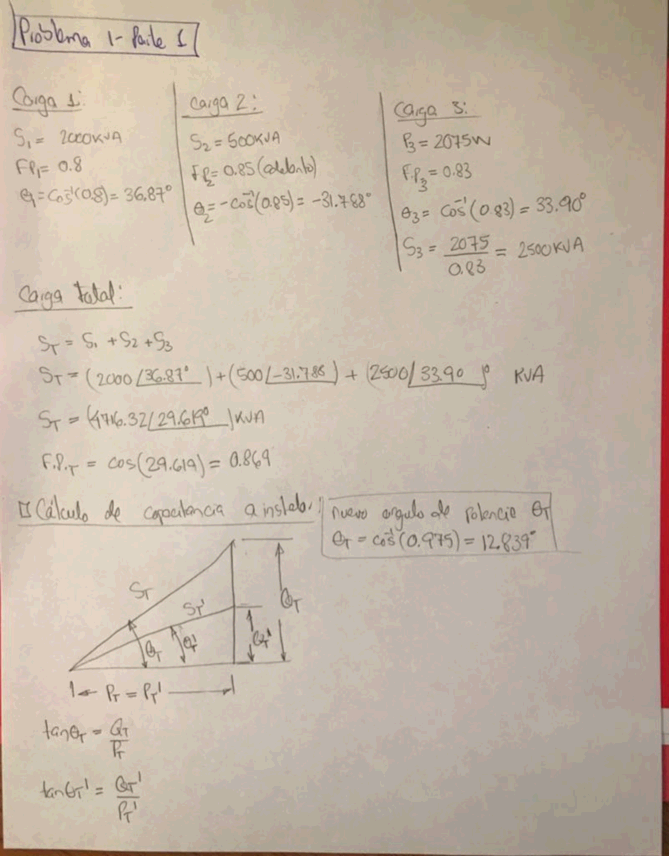 Problema 1 - Parte 1
Carga 1:
S₁ = 2000KVA
FP₁ = 0.8
θ₁ = cos⁻¹(0.8) = 36.87°
Carga 2:
S₂ = 500KVA
FP₂ = 0.85 (adelanto)
θ₂ = -cos⁻¹(0.85) = -31.788°
Carga 3:
P₃ = 2075W
F.P₃ = 0.83
θ₃ = cos⁻¹(0.83) = 33.90°
S₃ = 2075/0.83 = 2500KVA
Carga total:
S_T = S₁ + S₂ + S₃
S_T = (2000∠36.87°) + (500∠-31.788) + (2500∠33.90)° KVA
S_T = (4716.32∠29.619°)KVA
F.P._T = cos(29.619) = 0.869
Cálculo de capacitancia a instalar:
nuevo angulo de potencia θ_T
θ_T = cos⁻¹(0.975) = 12.839°
S_T
S_T'
θ_T
θ_T'
Q_T'
Q_T
P_T = P_T'
tanθ_T = Q_T/P_T
tanθ_T' = Q_T'/P_T'